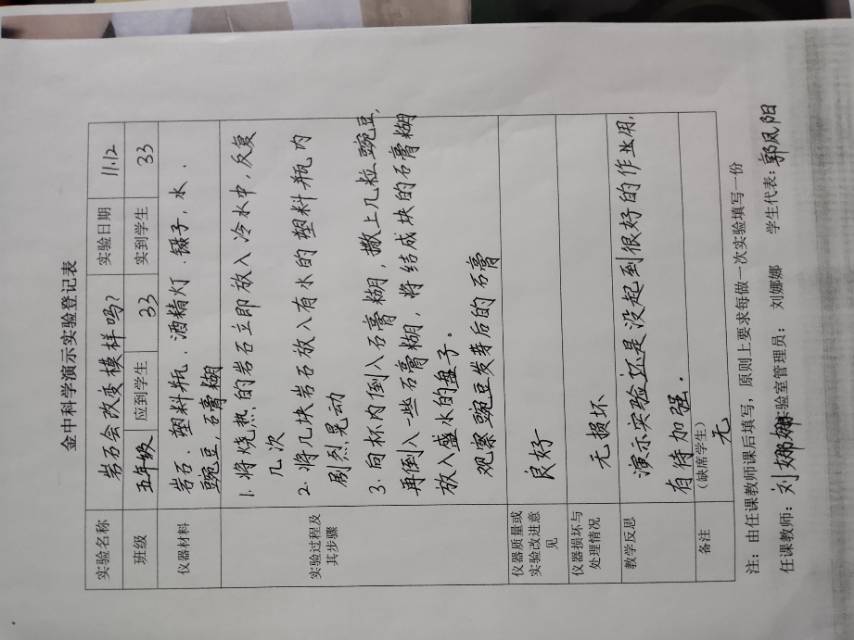 金中科学演示实验登记表
实验名称 岩石会改变模样吗? 实验日期 11.12
班级 五年级 应到学生 33 实到学生 33
仪器材料 岩石、塑料瓶、酒精灯、镊子,水、
豌豆,石膏糊
实验过程及
其步骤
1. 将烧热的岩石立即放入冷水中,反复
几次
2. 将几块岩石放入有水的塑料瓶内
剧烈晃动
3. 向杯内倒入石膏糊,撒上几粒豌豆,
再倒入一些石膏糊,将结成块的石膏糊
放入盛水的盘子。
观察豌豆发芽后的石膏
仪器质量或
实验改进意
见
良好
仪器损坏与
处理情况
无损坏
教学反思
演示实验还是没起到很好的作业用,
有待加强.
备注
(缺席学生)
无
注:由任课教师课后填写,原则上要求每做一次实验填写一份
任课教师:刘娜娜 实验室管理员: 刘娜娜 学生代表:郭凤阳